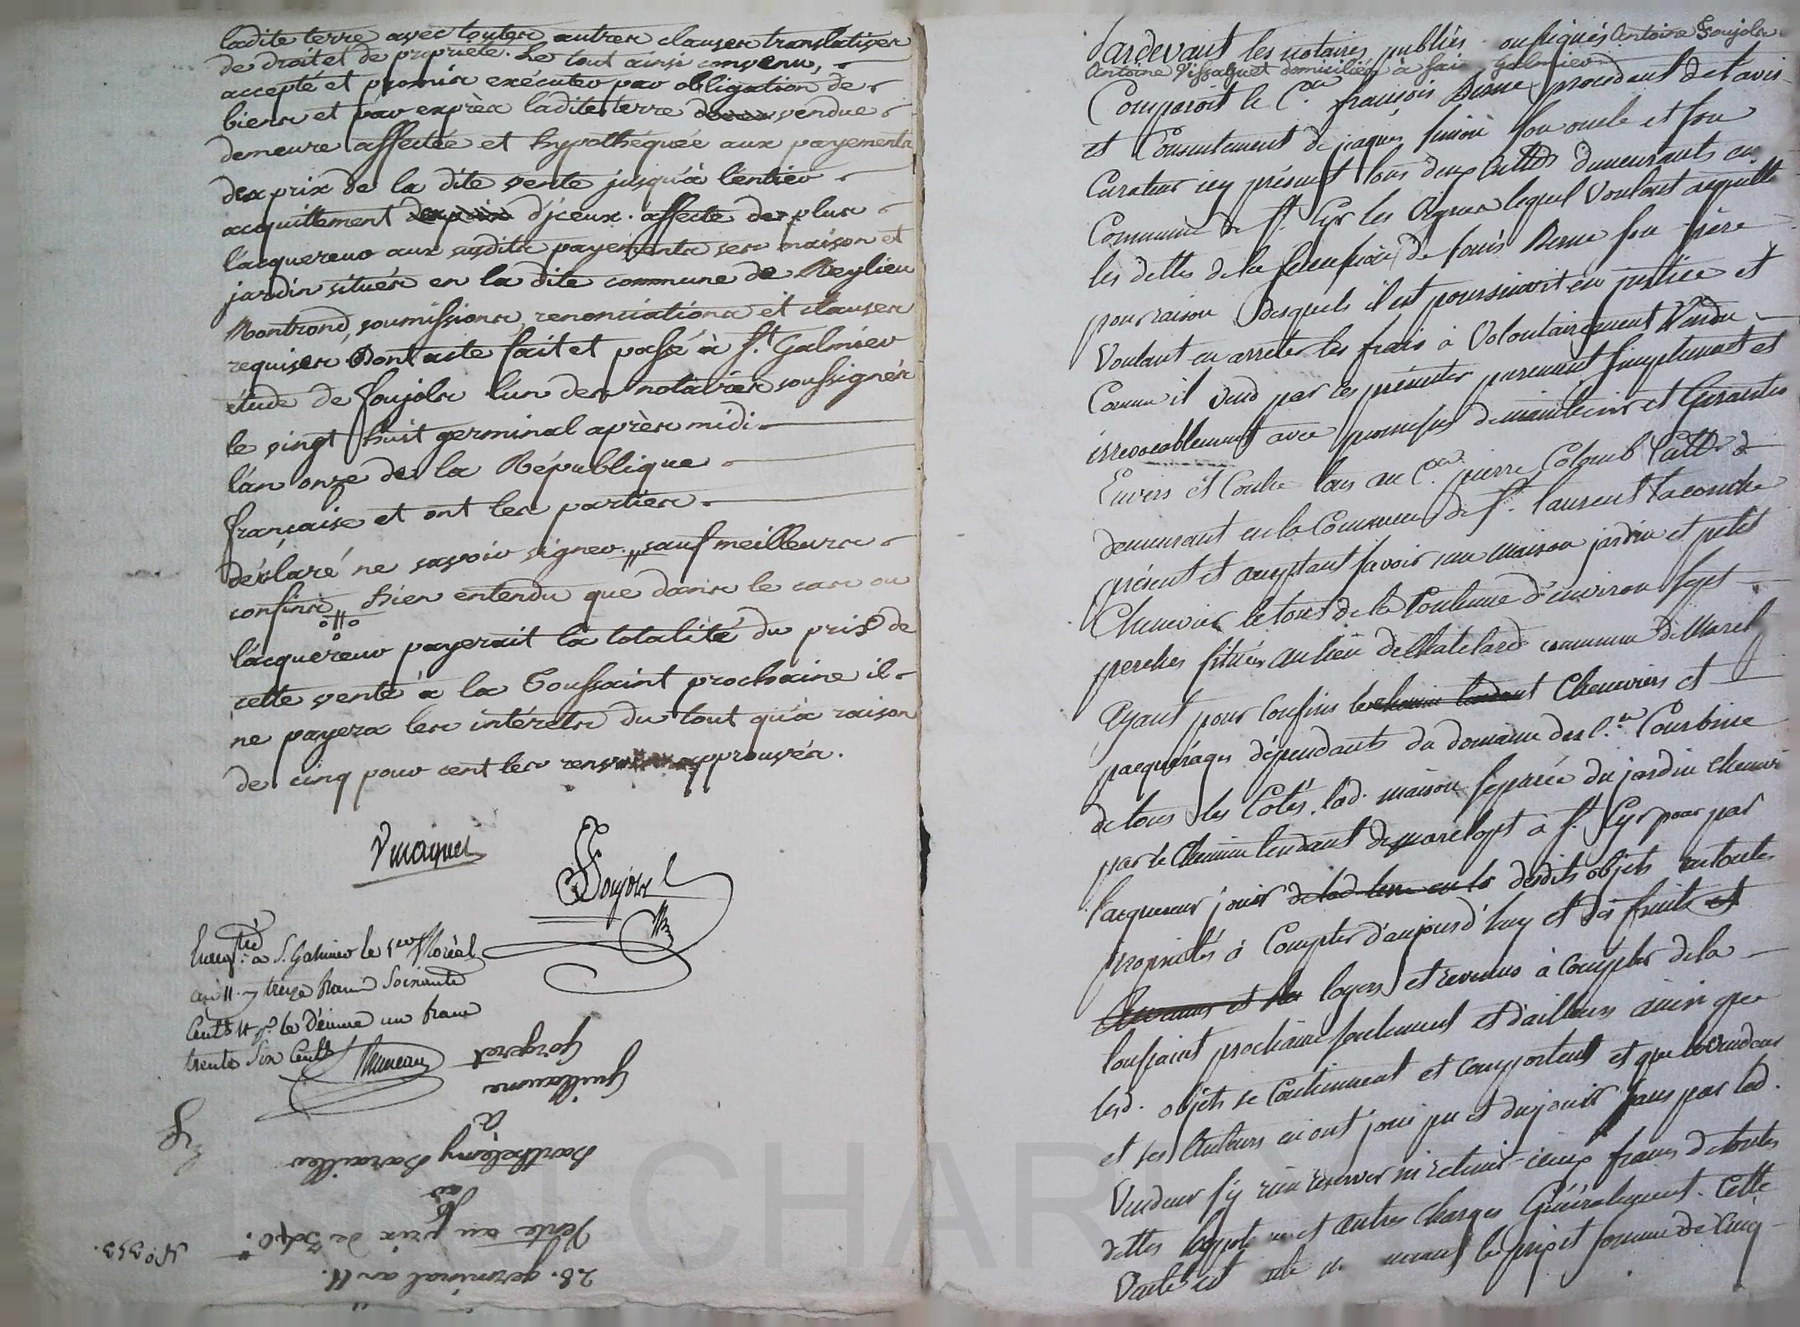 ladite terre avec toutes autres clauses translatives
de droit et de propriété. Le tout ainsi convenu,
accepté et promis exécuter par obligation de
biens et par exprès ladite terre vendue
demeure affectée et hypothéquée aux payements
des prix de la dite vente jusqu'à l'entier
acquittement d'iceux. affecte de plus
l'acquereur aux susdits payements ses maison et
jardin situés en la dite commune de Meylieu
Montrond, soumissions renonciations et clauses
requises, Dont acte fait et passé à St. Galmier
étude de Soujols l'un des notaires soussignés
le vingt huit germinal après midi
l'an onze de la République
française et ont les parties
déclaré ne savoir signer. sauf meilleurs
confins, bien entendu que dans le cas ou
l'acquéreur payerait la totalité du prix de
cette vente à la Toussaint prochaine il
ne payera les intérets du tout qu'à raison
de cinq pour cent les renvois approuvés.
Soujols
à St. Galmier le 1er floréal
an 11. treize francs soixante
cents le décime un franc
trente six cents
Gorgeret
Guillaume
à
Barthélémy Barailler
par
Vente au prix de 340.
28. germinal an 11.
N.o 353.
Pardevant les notaires publics soussignés Antoine Soujols
Antoine Vissaguet domiciliés à Galmier
Comparoit le C.en françois Berne procedant de l'avis
et Consentement de jaques simon son oncle et son
Curateur icy présent tous deux cult. demeurants en
Commune de St. Cyr les Vignes lequel Voulant acquitter
les dettes de la succession de Louis Berne son frère
pour raison desquels il est poursuivit en justice et
Voulant en arreter les frais à Volontairement Vendu
Comme il vend par ces présentes purement simplement et
irrevocablement avec promesses de maintenir et Garantir
Envers et Contre tous au C.en pierre Colomb Cult.
demeurant en la Commune de St. laurent la conche
présent et acceptant savoir une maison jardin et petit
Chenevier le tout de la Contenue d'environ sept
perches situés au lieu de commune de Marclopt
Ayant pour Confins les Cheneviers et
pacquérages dépendants du domaine des C.en Courbine
de tous les Cotés, lad. maison séparée du jardin Chenevier
par le Chemin tendant de marclopt à St. Cyr pour par
l'acquereur jouir desdits objets en toutes
propriétés à Compter d'aujourd'huy et des fruits
loyers et revenus à compter de la
toussaint prochaine seulement et d'ailleurs ainsi que
lesd. objets se Contiennent et comportent et que le Vendeur
et ses Auteurs en ont joui pu et du jouir sans par led.
Vendeur s'y rien reserver ni retenir iceux francs de toutes
dettes et autres Charges Généralement. Cette
Vente est le prix et somme de Cinq